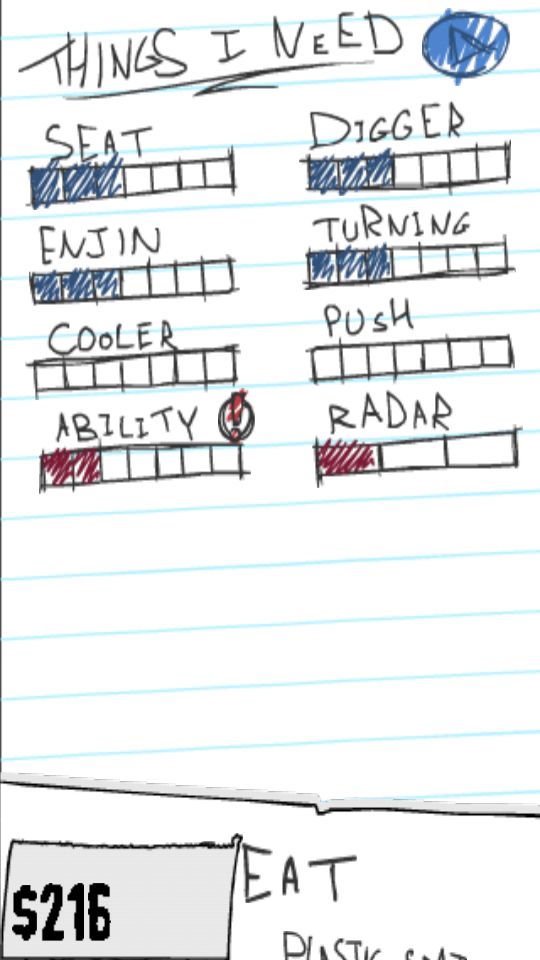 THINGS I NEED
SEAT
DIGGER
ENJIN
TURNING
COOLER
PUSH
ABILITY
RADAR
EAT
$216
PLASTIC